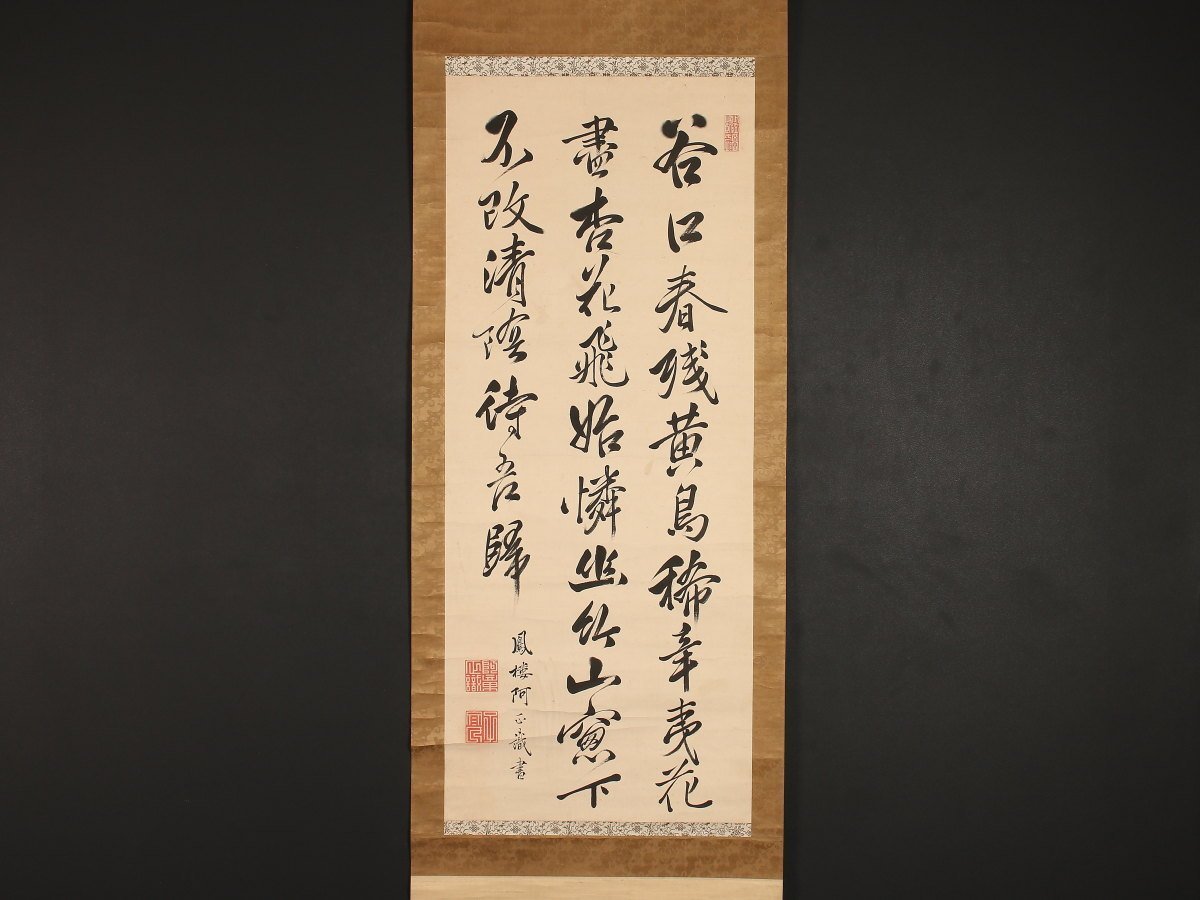 谷口春残黄鳥稀辛夷花
盡杏花飛始憐幽竹山窓下
不改清陰待吾歸
鳳樓阿正識書